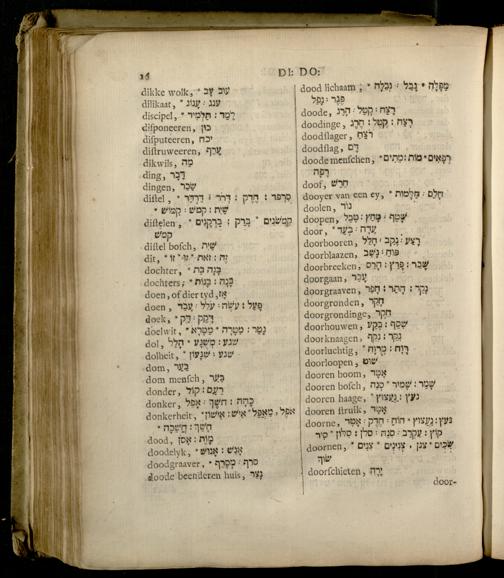 16
DI: DO:
dikke wolk, * עוב עב
dilikaat, * ענג · ענוג
discipel, * למד : תלמיד
disponeeren, כון
disputeeren, יכח
distruweeren, ערף
dikwils, מה
ding, דבר
dingen, שכר
distel, * סרפד : חדק : דרדר
שית : קמש · קמוש *
distelen, * ברקנים
קמש
distel bosch, שית
dit, * זה : זאת · זו
dochter, * בנה בת
dochters, * בנה : בנות
doen, of dier tyd, אז
doen, פעל : עשה : עלל · עבד
doek, * דקק : דק
doelwit, * נטר : מטרה
dol, * שגע : משגע · הלל
dolheit, * שגע · שגעון
dom, בער
dom mensch, בער
donder, רעם : קול
donker, כהה : חשך : אפל
donkerheit, * אפל, מאפל · איש : אישון
חשך : חשכה *
dood, מות : אסן
doodelyk, * אנש : אנוש
doodgraaver, * סרף · מסרף
doode beenderen huis, נצר
dood lichaam, * מפלה * נבל : נבלה
פגר : נפל
doode, רצח : קטל : הרג
doodinge, רצח : קטל : הרג
doodslager, רוצח
doodslag, דם
doode menschen, * רפאים * מות : מתים
רפה
doof, חרש
dooyer van een ey, * חלם · חלמות
doolen, נוד
doopen, שטף : מחץ : טבל
door, * עדה · בעד
doorbooren, רצע : נקב : חלל
doorblaazen, פוח : נשב
doorbreeken, שבר : פרץ : הרס
doorgaan, עבר
doorgraaven, נקר : חתר : חפר
doorgronden, חקר
doorgrondinge, חקר
doorhouwen, שסף : בקע
doorknaagen, נקר : נקף
doorluchtig, * רוח : מרוח
doorloopen, שוט
dooren boom, אטד
dooren bosch, שמר : שמיר * סנה
dooren haage, * נעץ : נעצוץ
dooren struik, אטד
doorne, * נעץ : נעצוץ * חוח : חדק : אטד
קוץ : עקרב · סנה : סלן : סלון * סיר
doornen, * שכים * צנן, צנינים * צנים
שוך
doorschieten, ירה
door-